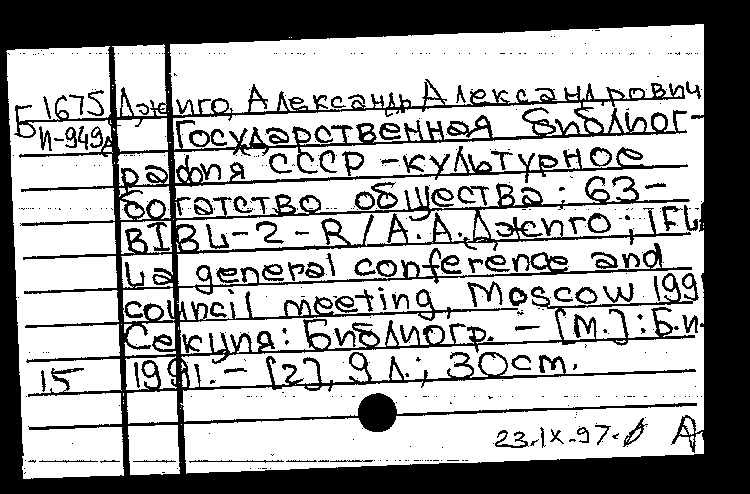 Б 1675 Джиго, Александр Александрович
И-949 Государственная библиог-
рафия СССР - культурное
богатство общества : 63-
BIBL-2-R / А.А. Джиго ; IFLA
La general conference and
council meeting, Moscow 1991
Секция: Библиогр. - [М.] : Б.и.
15 1991. - [2], 9 л. ; 30 cm.
23.IX.97.